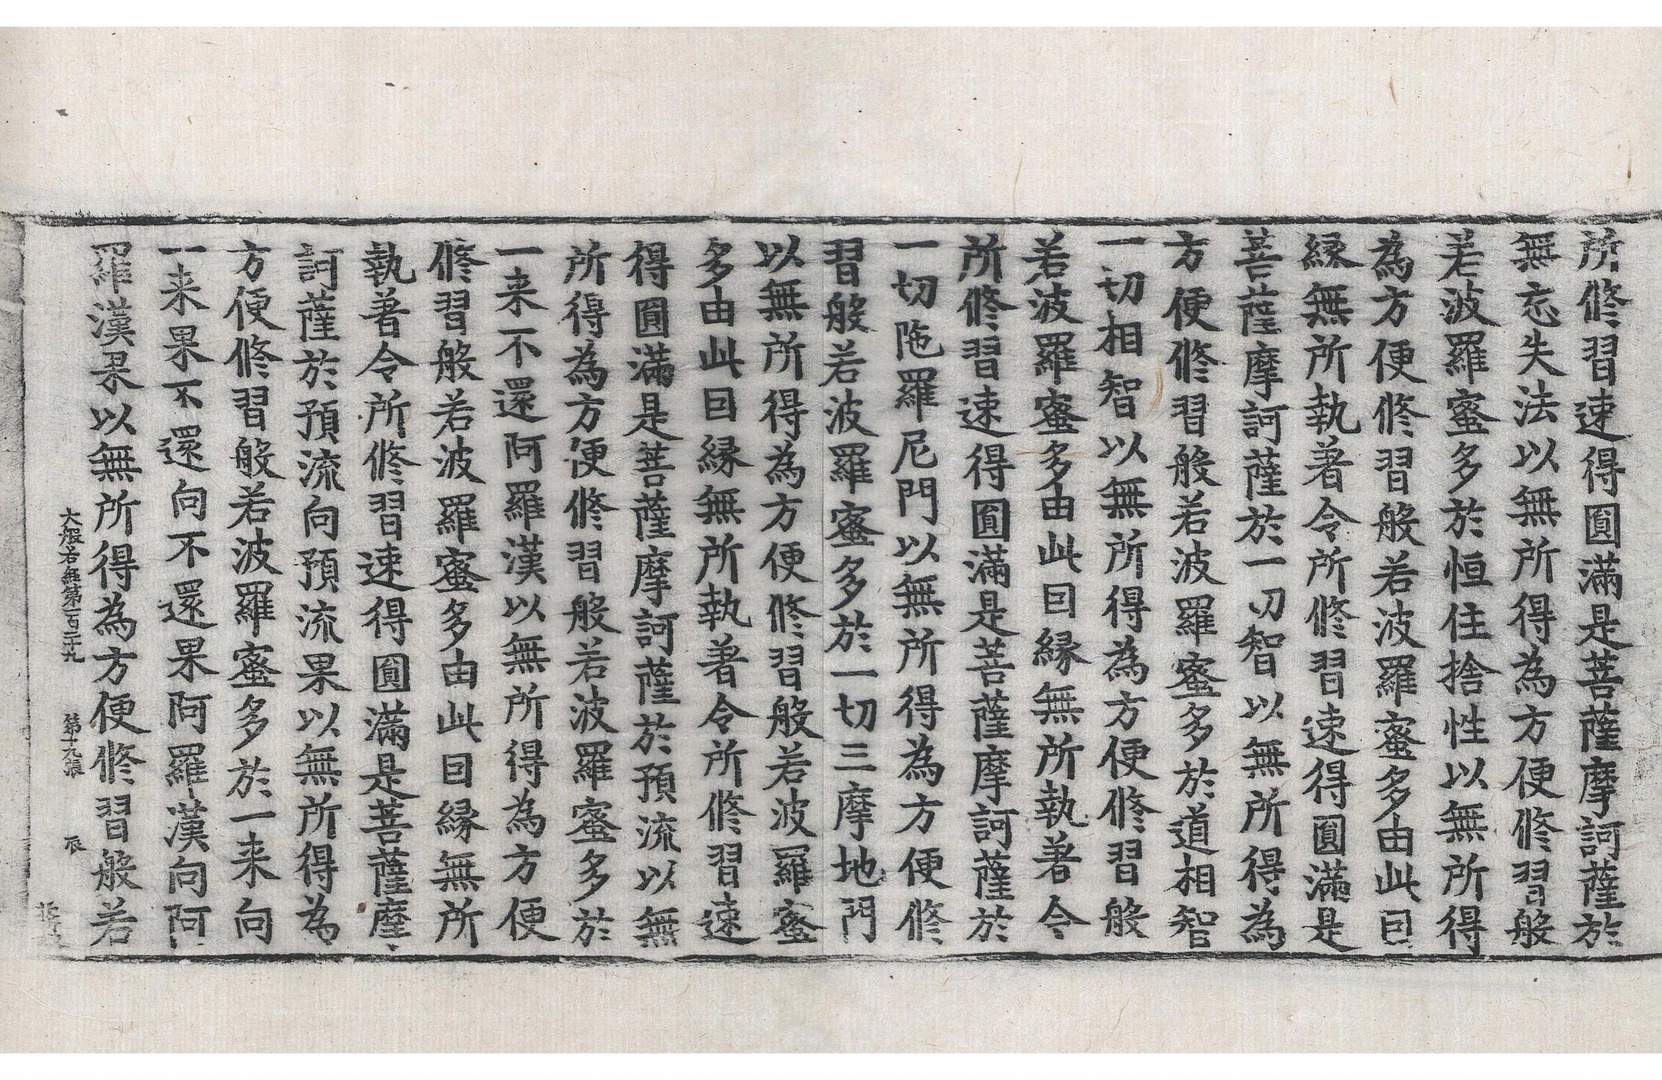 所修習速得圓滿是菩薩摩訶薩於
無忘失法以無所得為方便修習般
若波羅蜜多於恒住捨性以無所得
為方便修習般若波羅蜜多由此因
緣無所執著令所修習速得圓滿是
菩薩摩訶薩於一切智以無所得為
方便修習般若波羅蜜多於道相智
一切相智以無所得為方便修習般
若波羅蜜多由此因緣無所執著令
所修習速得圓滿是菩薩摩訶薩於
一切陁羅尼門以無所得為方便修
習般若波羅蜜多於一切三摩地門
以無所得為方便修習般若波羅蜜
多由此因緣無所執著令所修習速
得圓滿是菩薩摩訶薩於預流以無
所得為方便修習般若波羅蜜多於
一来不還阿羅漢以無所得為方便
修習般若波羅蜜多由此因緣無所
執著令所修習速得圓滿是菩薩摩
訶薩於預流向預流果以無所得為
方便修習般若波羅蜜多於一来向
一来果不還向不還果阿羅漢向阿
羅漢果以無所得為方便修習般若
大般若經第一百二十九 第十九張 辰